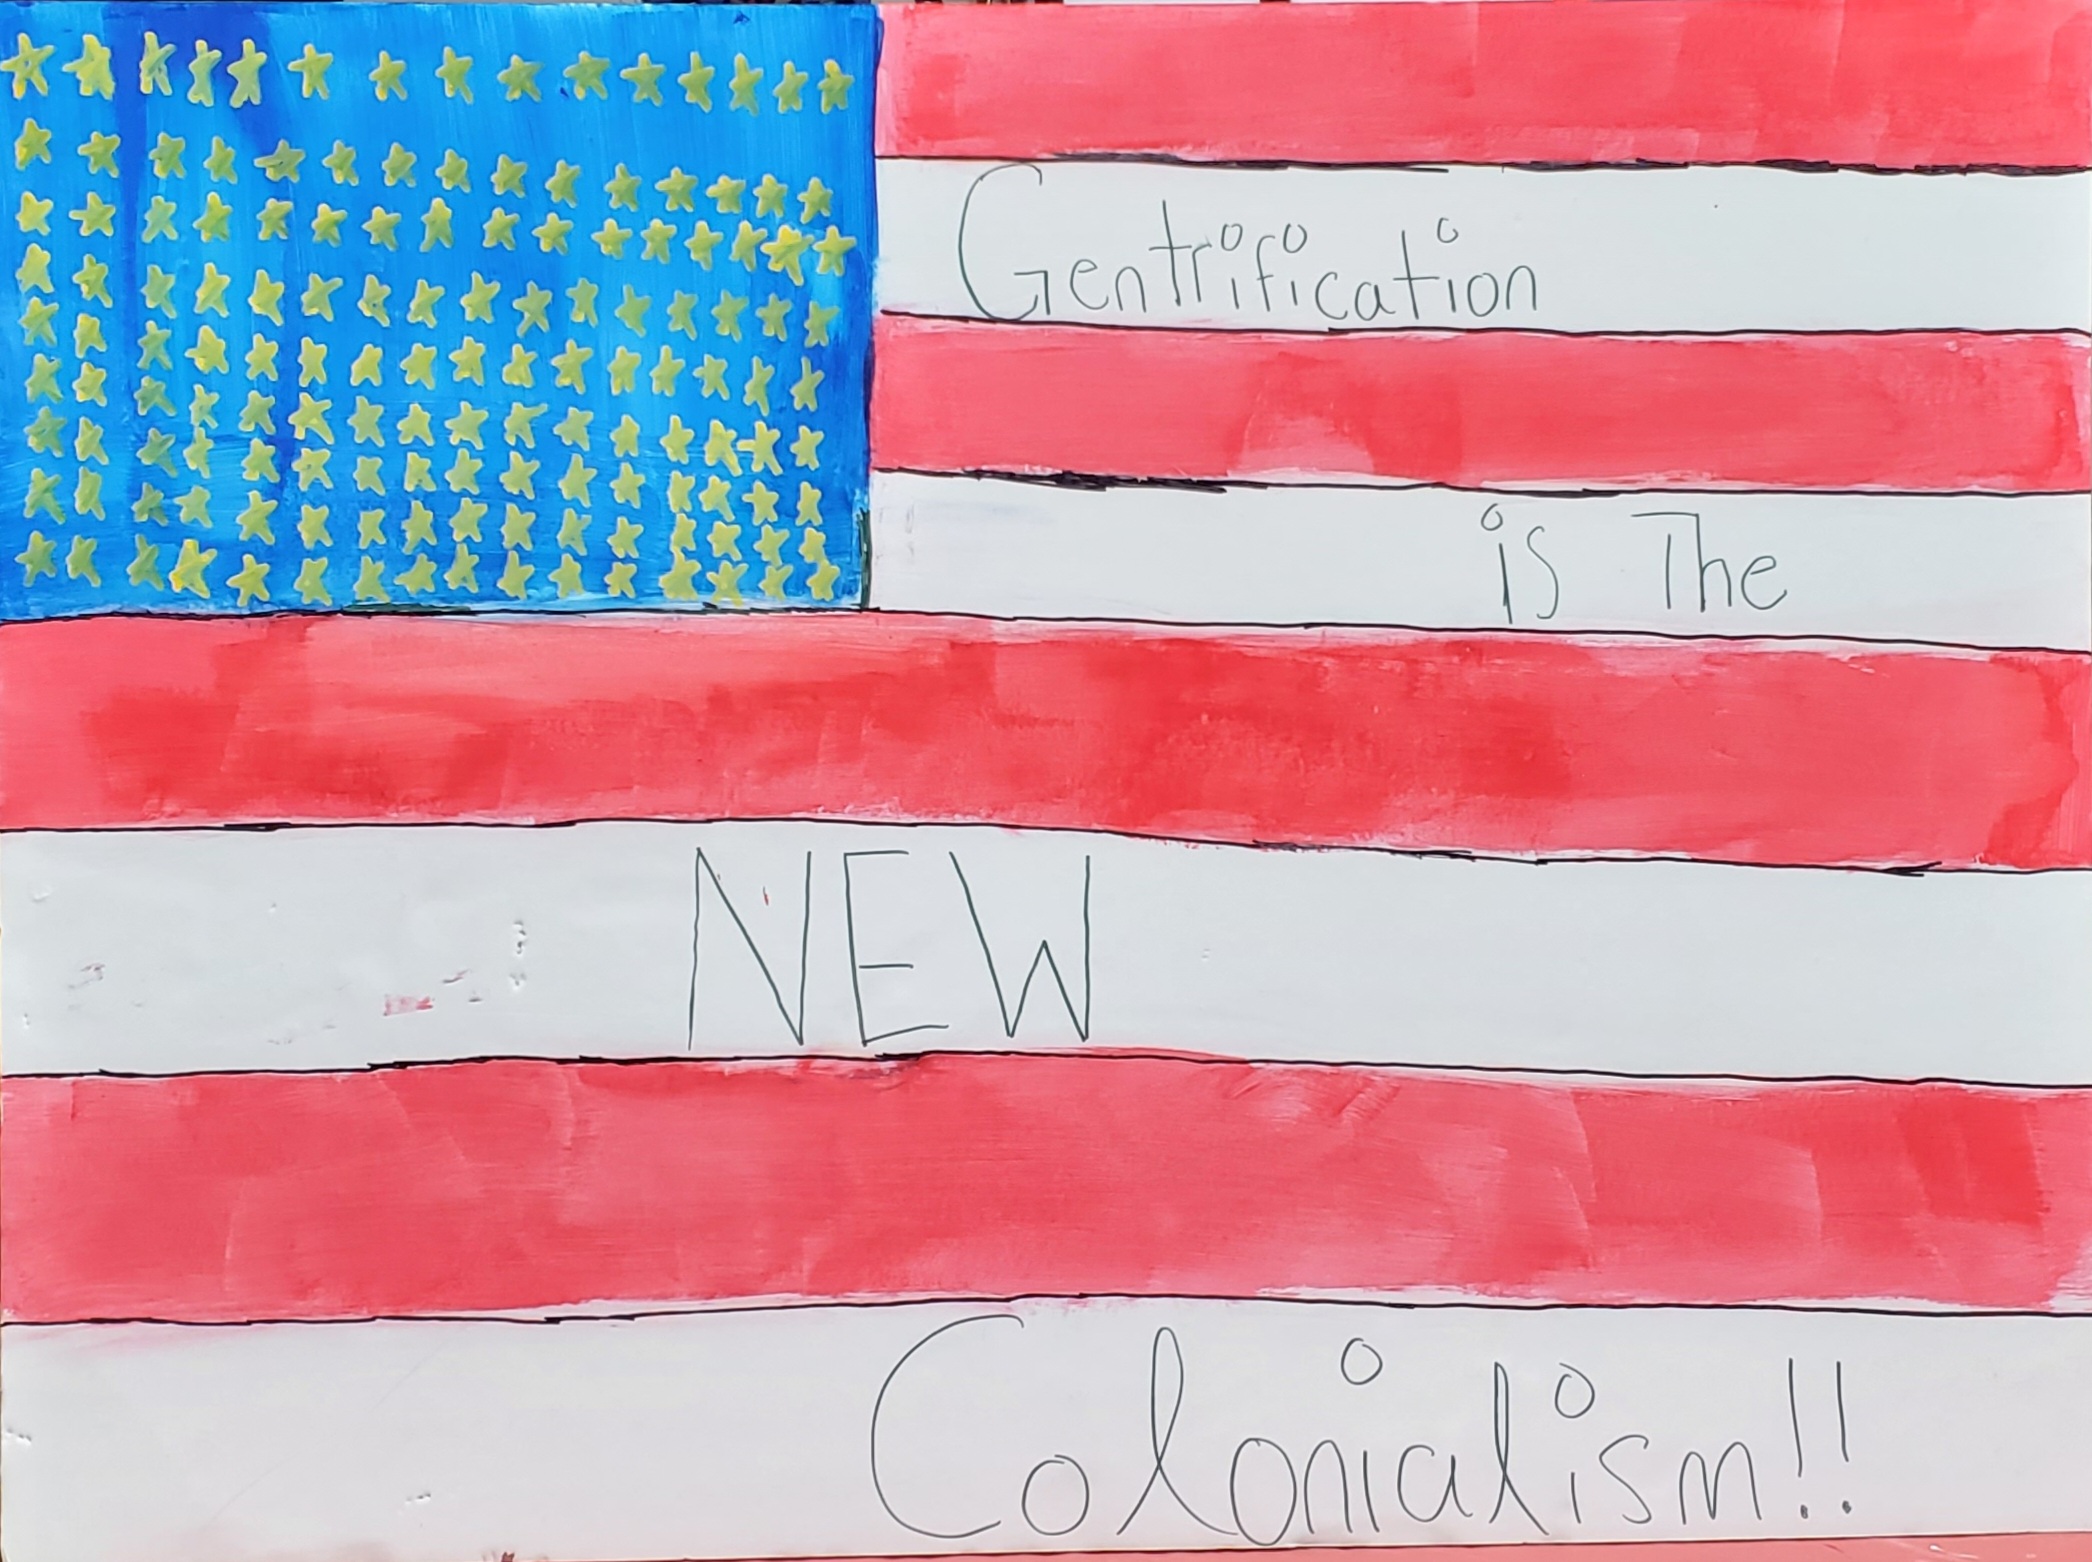 Gentrification
is The
NEW
Colonialism!!